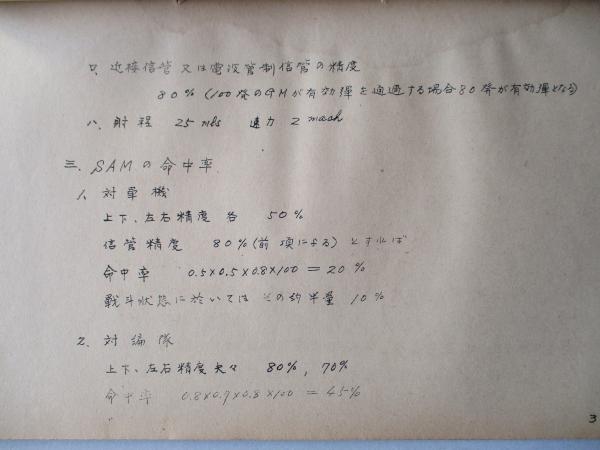 ロ、近接信管又は電波管制信管の精度
80%(100発のGMが有効弾を通過する場合80発が有効弾となる)
ハ、射程 25 mls 速力 2 mach
三、SAMの命中率
1、対単機
上下、左右精度各 50%
信管精度 80%(前項による)とすれば
命中率 0.5×0.5×0.8×100=20%
戦斗状態に於いてはその約半量 10%
2、対編隊
上下、左右精度夫々 80%, 70%
命中率 0.8×0.7×0.8×100=45%
3